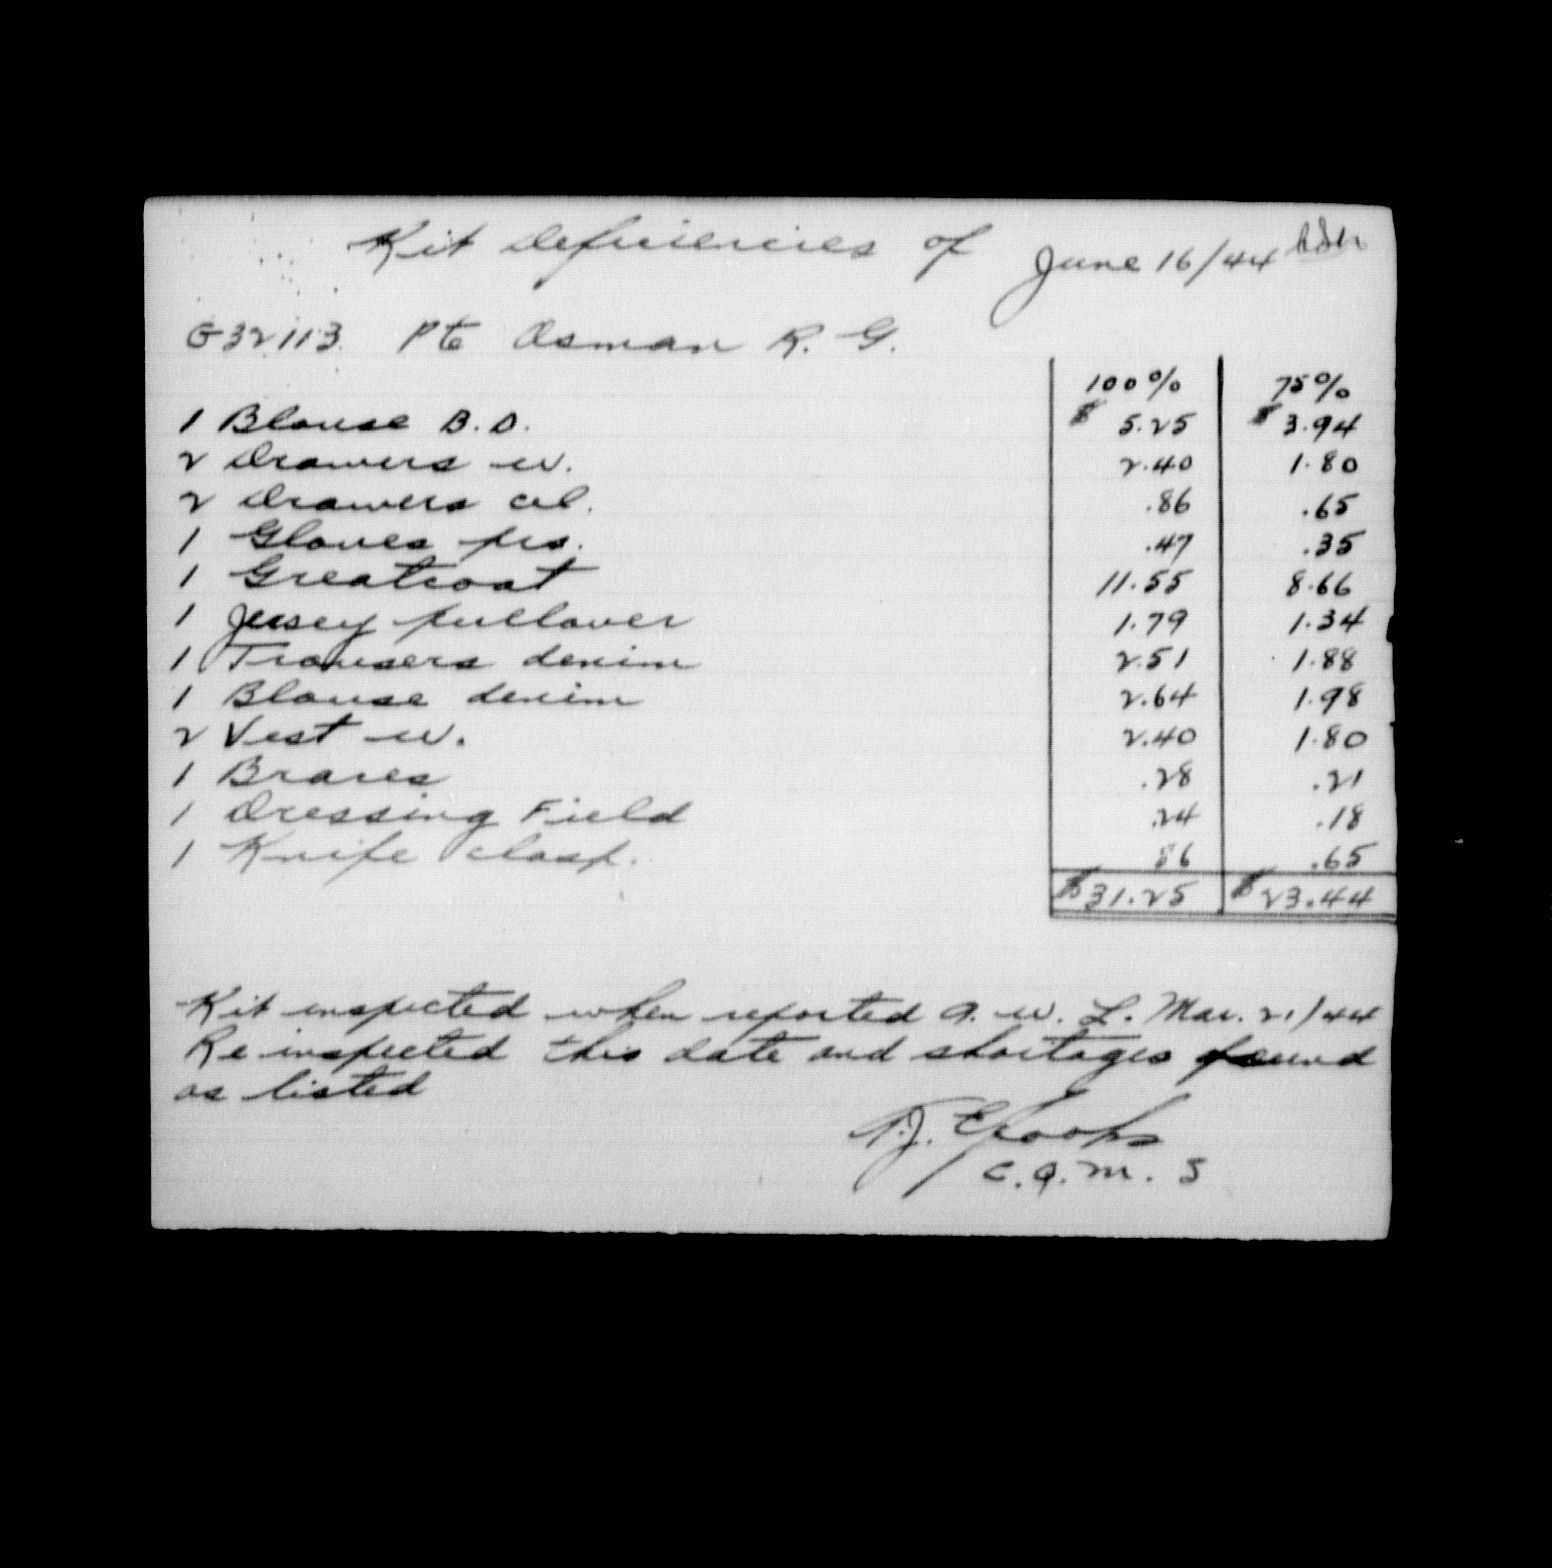 Kit Deficiencies of June 16/44
G32113 Pte Osman R. G.
100% 75%
1 Blouse B.D. $ 5.25 $ 3.94
2 Drawers w. 2.40 1.80
2 Drawers cel. .86 .65
1 Gloves prs. .47 .35
1 Greatcoat 11.55 8.66
1 Jersey pullover 1.79 1.34
1 Trousers denim 2.51 1.88
1 Blouse denim 2.64 1.98
2 Vest w. 2.40 1.80
1 Braces .28 .21
1 Dressing Field .24 .18
1 Knife clasp. 86 .65
$31.25 $23.44
Kit inspected when reported A. W. L. Mar. 21/44
Re inspected this date and shortages found
as listed
C.Q.M.S